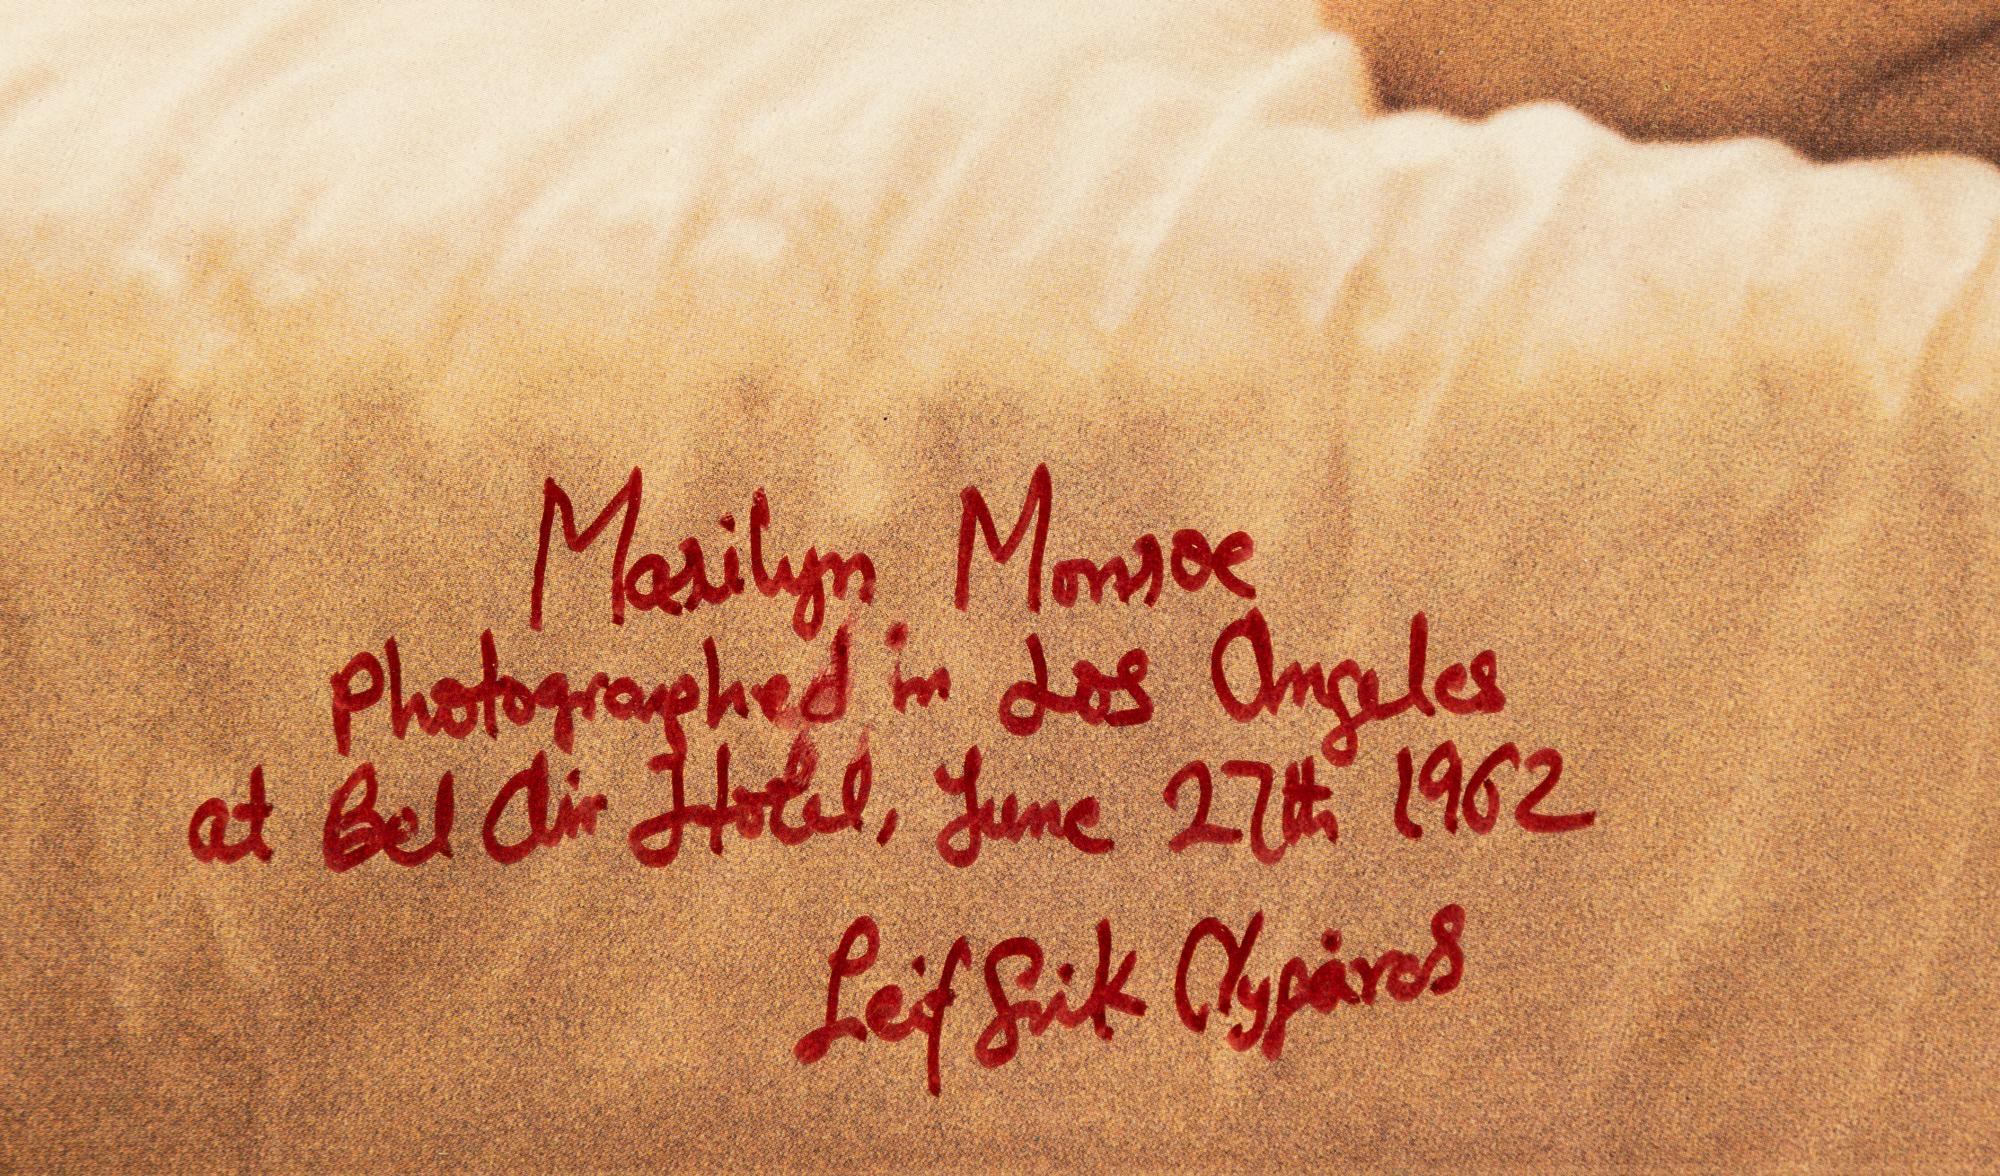 Marilyn Monroe
Photographed in Los Angeles
at Bel Air Hotel, June 27th 1962
Leif Erik Nygårds